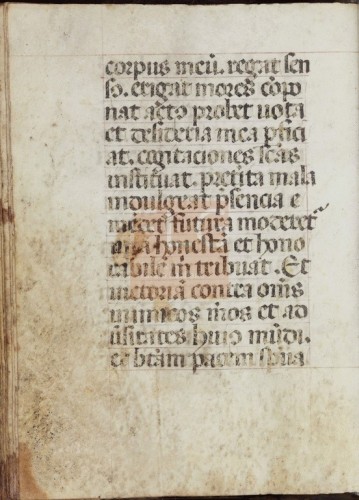 corpus meū. regat sen
so. erigat mores cōpo
nat acto probet uota
et desideria mea p̄fici
at. cogitaciones scās
instituat. pretita mala
indulgeat p̄sencia e
mendet futura moderet᷑
uitā honestā et hono
rabilē m̄ tribuat. Et
uictoriā contra om̄s
inimicos m̄os et ad
ūsitates huiꝰ mūdi.
et btām pacem sp̄ua